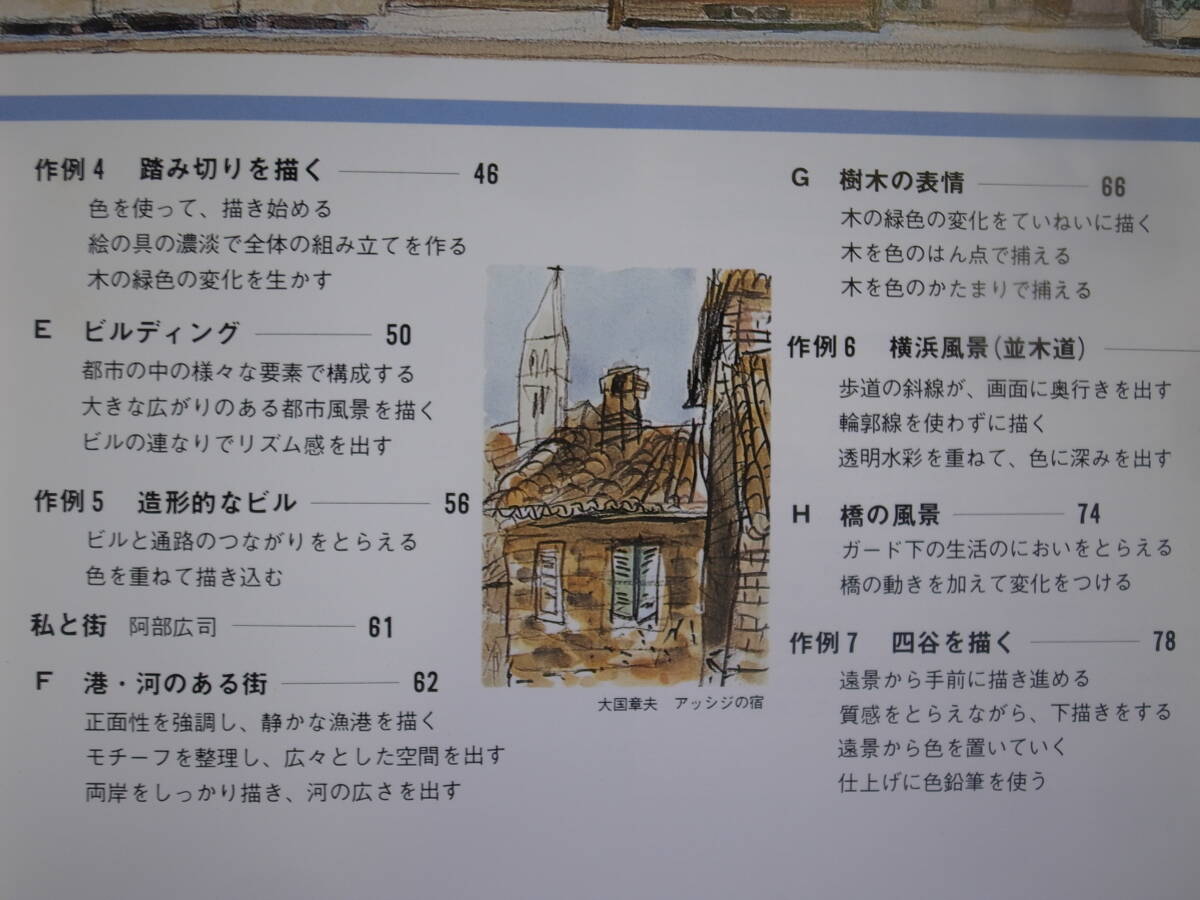 作例4 踏み切りを描く 46
色を使って、描き始める
絵の具の濃淡で全体の組み立てを作る
木の緑色の変化を生かす
E ビルディング 50
都市の中の様々な要素で構成する
大きな広がりのある都市風景を描く
ビルの連なりでリズム感を出す
作例5 造形的なビル 56
ビルと通路のつながりをとらえる
色を重ねて描き込む
私と街 阿部広司 61
F 港・河のある街 62
正面性を強調し、静かな漁港を描く
モチーフを整理し、広々とした空間を出す
両岸をしっかり描き、河の広さを出す
大国章夫 アッシジの宿
G 樹木の表情 66
木の緑色の変化をていねいに描く
木を色のはん点で捕える
木を色のかたまりで捕える
作例6 横浜風景(並木道)
歩道の斜線が、画面に奥行きを出す
輪郭線を使わずに描く
透明水彩を重ねて、色に深みを出す
H 橋の風景 74
ガード下の生活のにおいをとらえる
橋の動きを加えて変化をつける
作例7 四谷を描く 78
遠景から手前に描き進める
質感をとらえながら、下描きをする
遠景から色を置いていく
仕上げに色鉛筆を使う